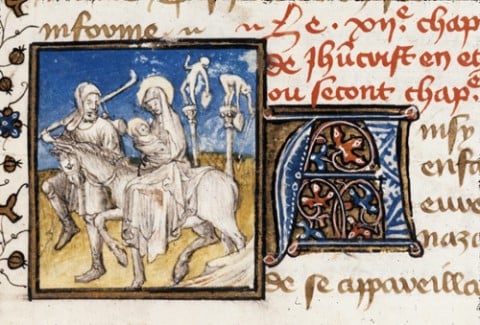 informe
Le .xiie. chap
de Jhucrist en et
ou second chape
Ainsy
enfa
euve
naza
de se appareilla